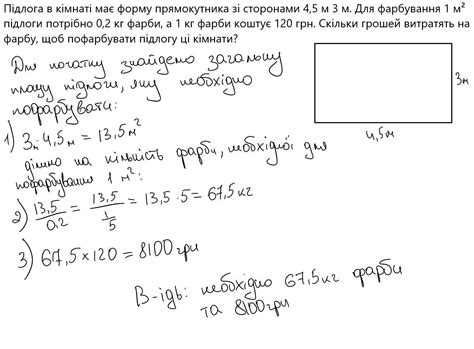 Підлога в кімнаті має форму прямокутника зі сторонами 4,5 м 3 м. Для фарбування 1 м²
підлоги потрібно 0,2 кг фарби, а 1 кг фарби коштує 120 грн. Скільки грошей витратять на
фарбу, щоб пофарбувати підлогу ці кімнати?
Для початку знайдемо загальну
площу підлоги, яку необхідно
пофарбувати:
1) 3м · 4,5м = 13,5м²
3м
4,5м
ділимо на кількість фарби, необхідної для
пофарбування 1 м²:
2) 13,5/0,2 = 13,5/(1/5) = 13,5 · 5 = 67,5кг
3) 67,5 × 120 = 8100грн
В-ідь: необхідно 67,5кг фарби
та 8100грн